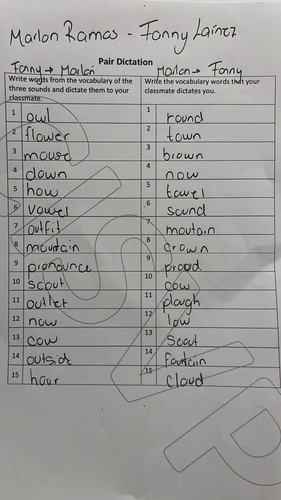 Marlon Ramos - Fanny Lainez
Pair Dictation
Fanny → Marlon
Marlon → Fanny
Write words from the vocabulary of the three sounds and dictate them to your classmate.
Write the vocabulary words that your classmate dictates you.
1 owl
1 round
2 flower
2 town
3 mouse
3 brown
4 down
4 now
5 how
5 towel
6 vowel
6 sound
7 outfit
7 moutain
8 mountain
8 crown
9 pronounce
9 proud
10 scout
10 cow
11 outlet
11 plough
12 now
12 low
13 cow
13 Scout
14 outside
14 foutain
15 hour
15 cloud